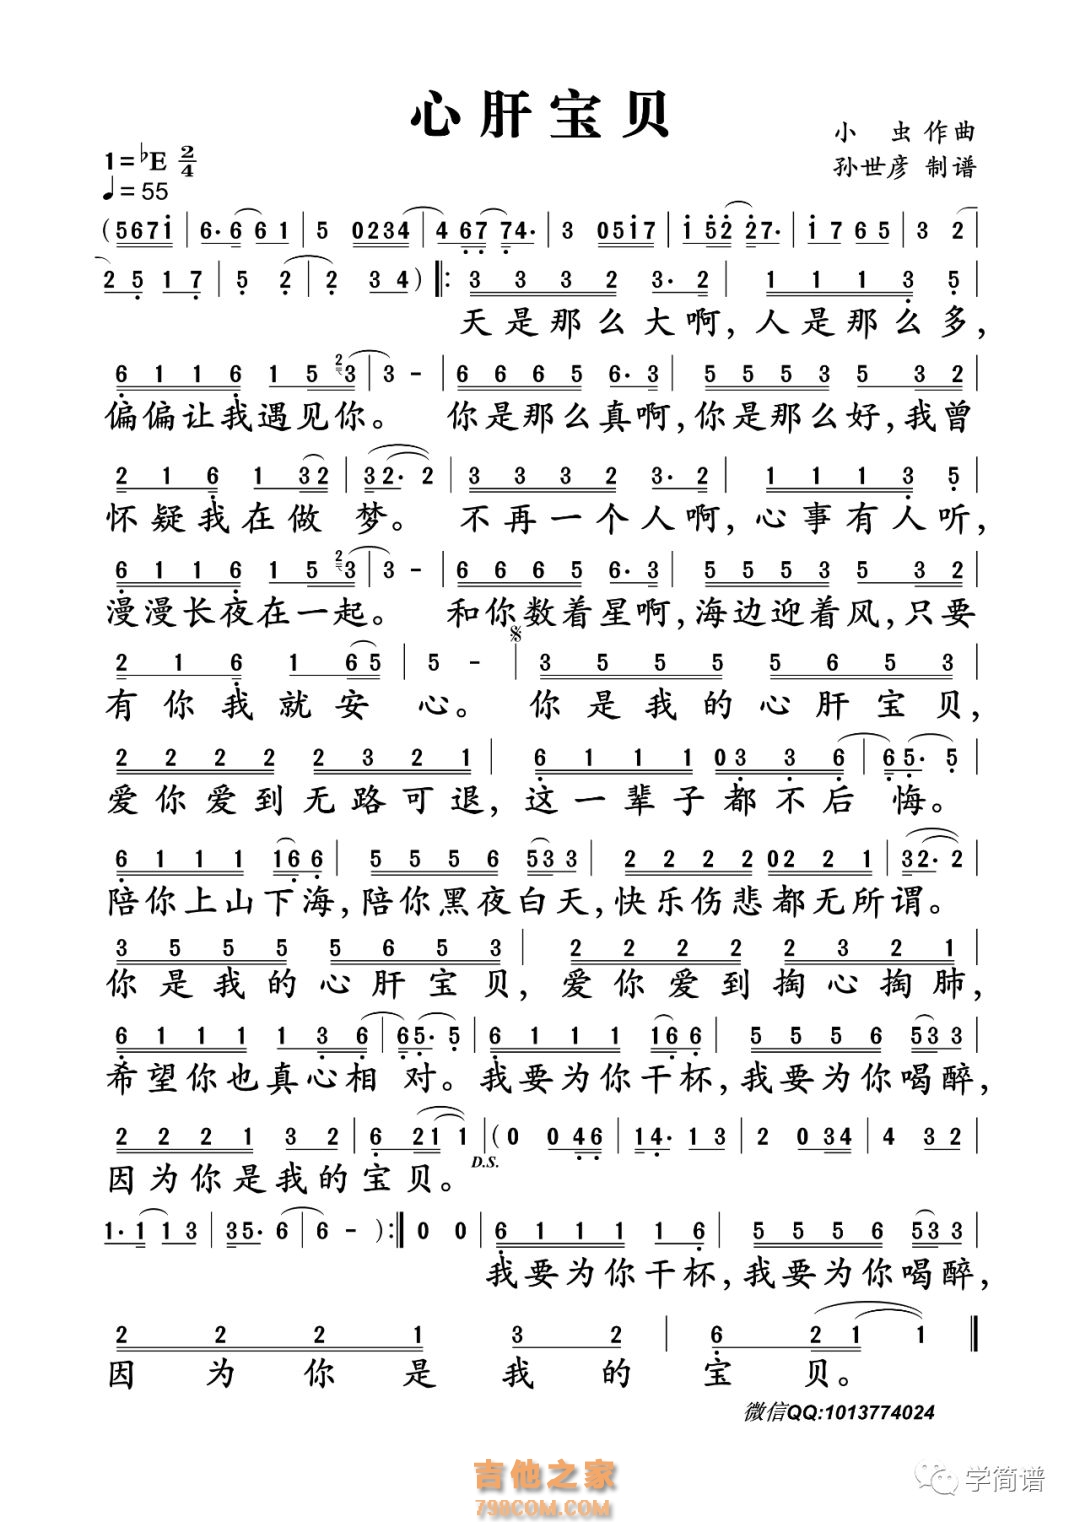 心肝宝贝
小 虫 作曲
1=♭E 2/4
孙世彦 制谱
♩=55
(567i 6· 6 6 1 5 0234 4 67 74· 3 0517 i 52 27· i 7 6 5 3 2
2 5 1 7 5 2 2 3 4) 3 3 3 2 3· 2 1 1 1 3 5
天是那么大啊,人是那么多,
6 1 1 6 1 5 2 3 3 - 6 6 6 5 6· 3 5 5 5 3 5 3 2
偏偏让我遇见你。 你是那么真啊,你是那么好,我曾
2 1 6 1 32 32· 2 3 3 3 2 3· 2 1 1 1 3 5
怀疑我在做梦。 不再一个人啊,心事有人听,
6 1 1 6 1 5 2 3 3 - 6 6 6 5 6· 3 5 5 5 3 5 3 2
漫漫长夜在一起。 和你数着星啊,海边迎着风,只要
2 1 6 1 65 5 - 3 5 5 5 5 6 5 3
有你我就安心。 你是我的心肝宝贝,
2 2 2 2 2 3 2 1 6 1 1 1 03 3 6 65· 5
爱你爱到无路可退,这一辈子都不后悔。
6 1 1 1 16 6 5 5 5 6 53 3 2 2 2 2 02 2 1 32· 2
陪你上山下海,陪你黑夜白天,快乐伤悲都无所谓。
3 5 5 5 5 6 5 3 2 2 2 2 2 3 2 1
你是我的心肝宝贝,爱你爱到掏心掏肺,
6 1 1 1 1 3 6 65· 5 6 1 1 1 16 6 5 5 5 6 53 3
希望你也真心相对。我要为你干杯,我要为你喝醉,
2 2 2 1 3 2 6 21 1 (0 0 46 14· 1 3 2 0 34 4 3 2
D.S.
因为你是我的宝贝。
1· 1 1 3 35· 6 6 - ) 0 0 6 1 1 1 1 6 5 5 5 6 53 3
我要为你干杯,我要为你喝醉,
2 2 2 1 3 2 6 2 1 1
因为你是我的宝贝。
微信QQ:1013774024
吉他之家
798COM.COM
学简谱